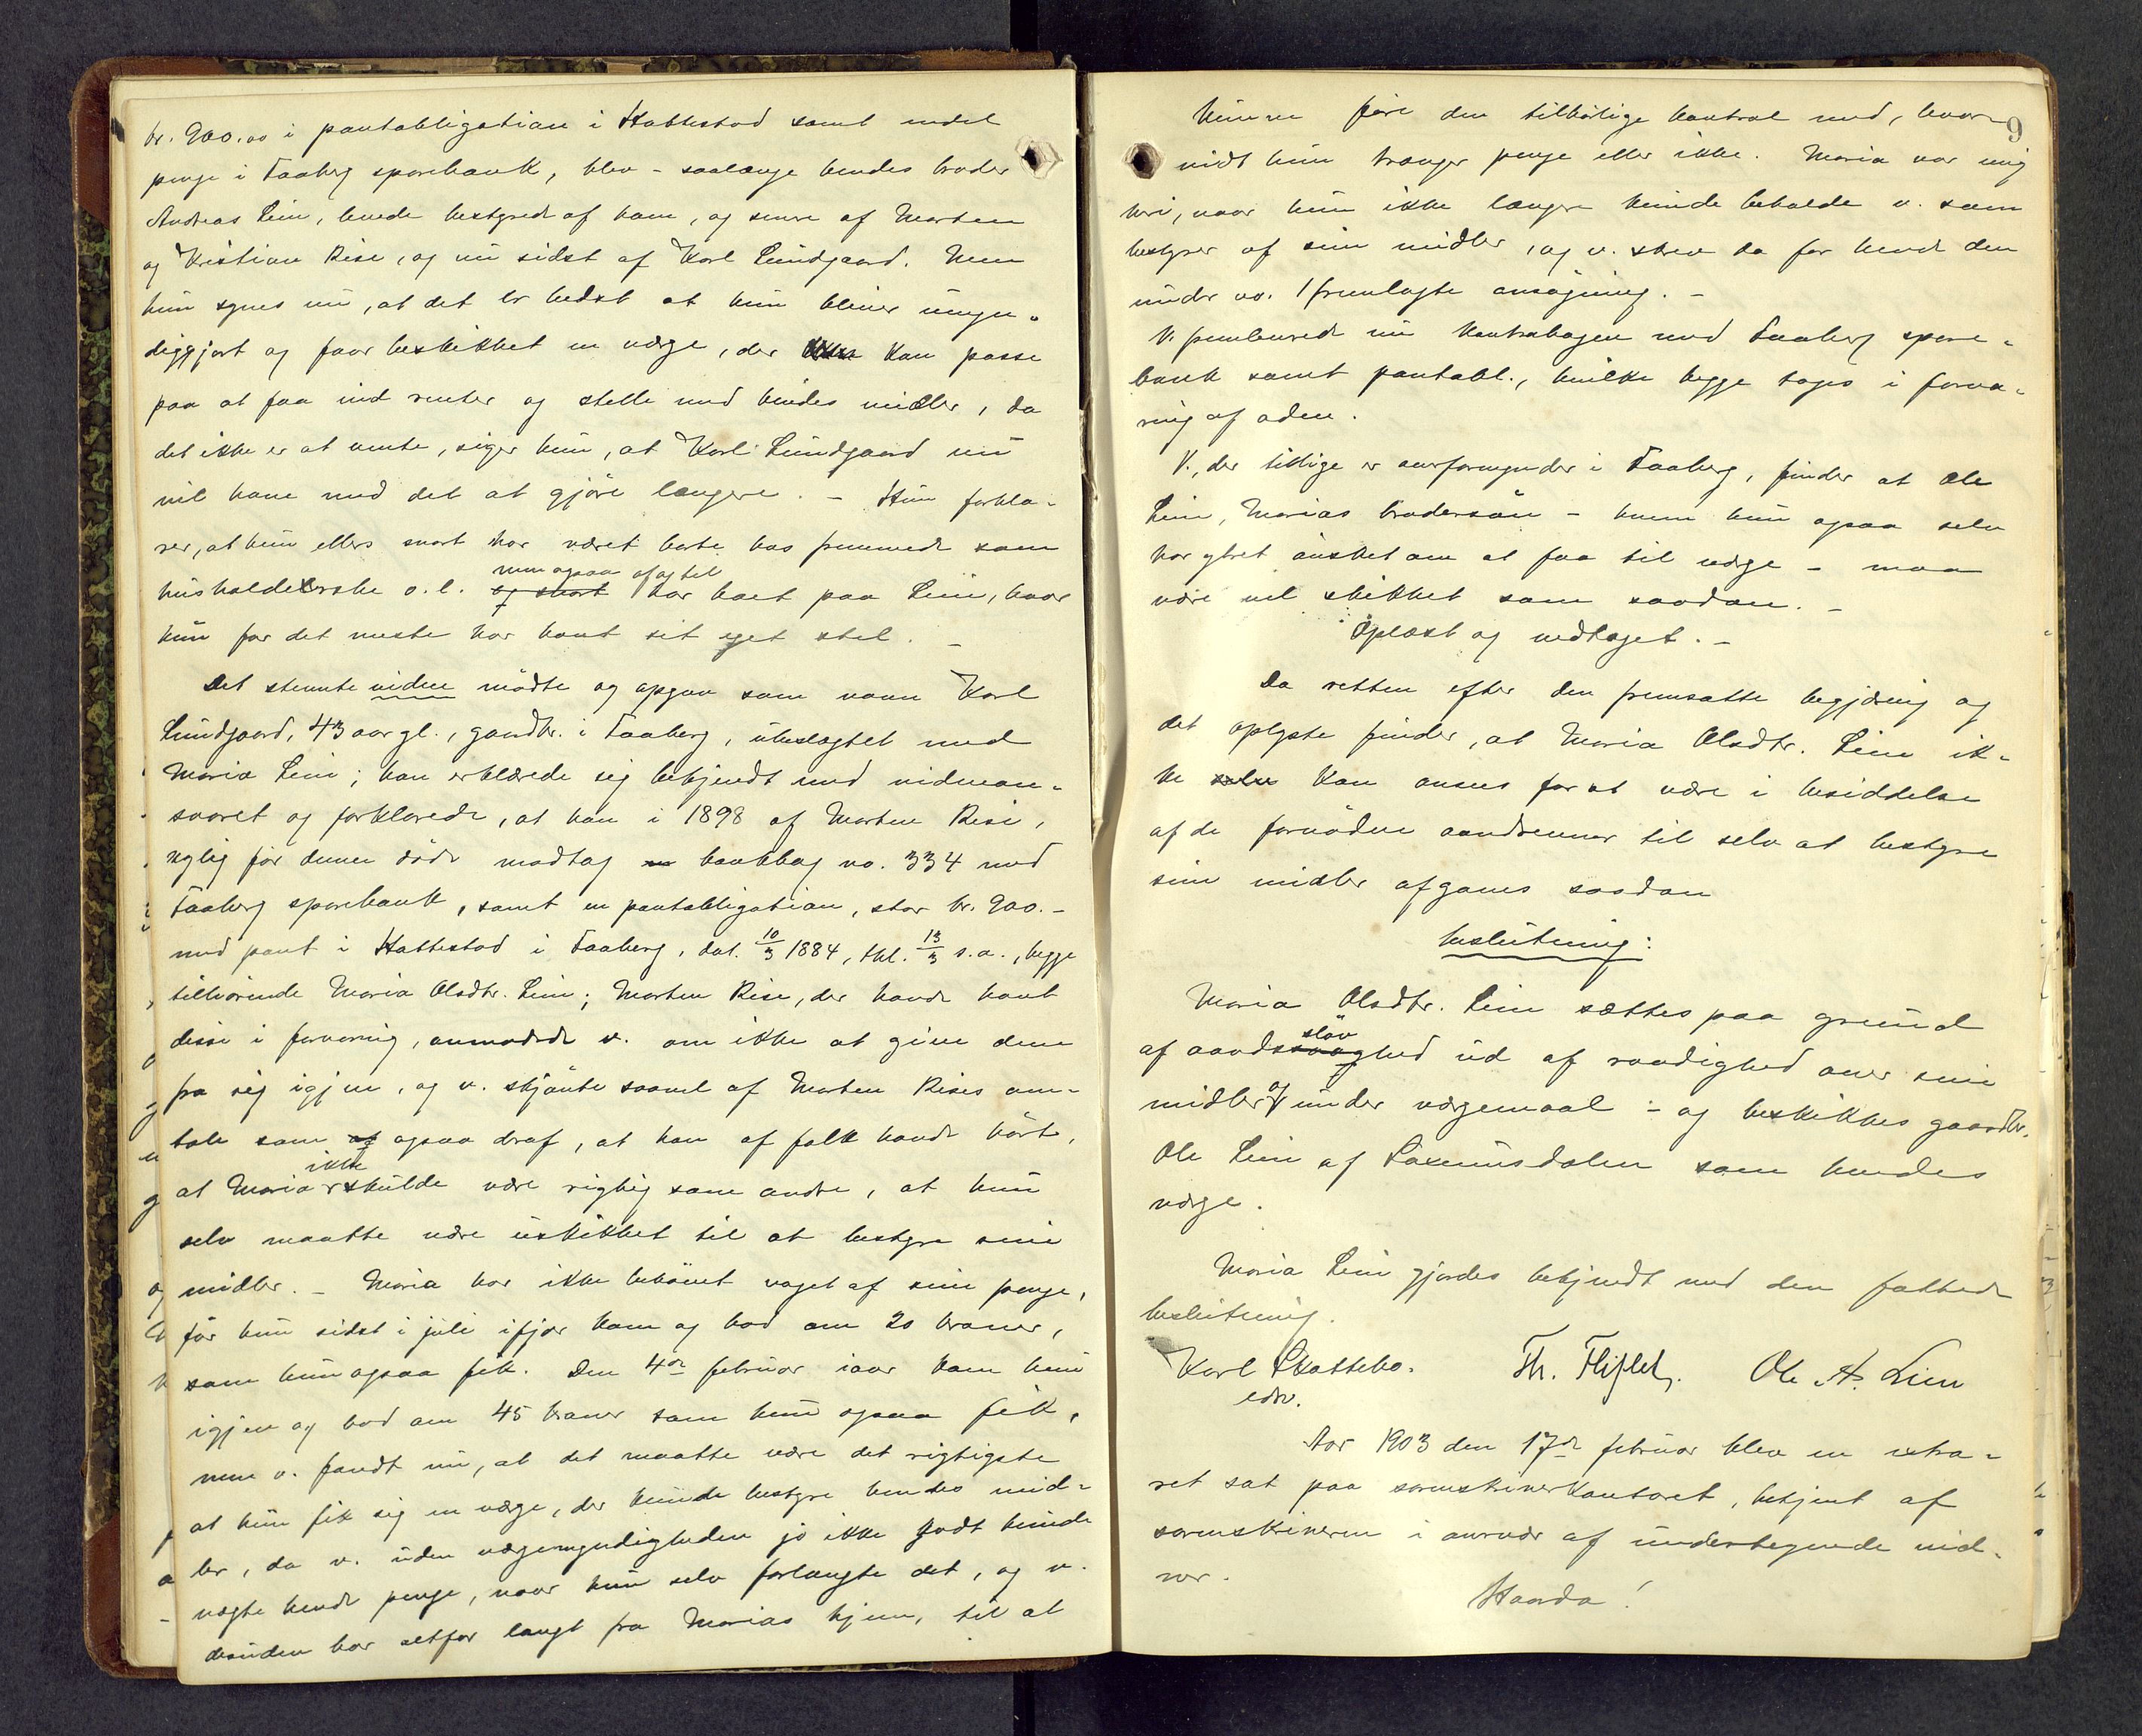 kr. 900.00 i pantobligation i Hattestad samt endel
penge i Faaberg sparebank, blev - saalænge hendes broder
Andreas Lien, levede bestyred af ham, og senere af Morten
og Kristian Rise, og nu sidst af Karl Lundgaard. Men
hun synes nu, at det er bedst at hun bliver umyn-
diggjort og faar beskikket en værge, der kan passe
paa at faa ind renter og stelle med hendes midler, da
det ikke er at vente, siger hun, at Karl Lundgaard nu
vil have med det at gjøre længere. - Hun forkla-
rer, at hun ellers snart har været borte hos fremmede som
husholderske o. l. og snart men ogsaa af og til har boet paa Lien, hvor
hun for det meste har havt sit eget stel. -
Det stevnte vidne mødte og opgav som navn Karl
Lundgaard, 43 aar gl., gaardbr. i Faaberg, ubeslægtet med
Maria Lien; han erklærede sig bekjendt med vidnean-
svaret og forklarede, at han i 1898 af Morten Rise,
nylig før denne døde modtog bankbog no. 334 med
Faaberg sparebank, samt en pantobligation, stor kr. 900.-
med pant i Hattestad i Faaberg, dat. 10/3 1884, thl. 13/3 s.a., begge
tilhørende Maria Olsdtr. Lien; Morten Rise, der havde havt
disse i forvaring, anmodede v. om ikke at give dem
fra sig igjen, og v. skjønte saavel af Morten Rises om-
tale som af ogsaa deraf, at han af folk havde hørt,
at Maria ikke skulde være rigtig som andre, at hun
selv maatte være uskikket til at bestyre sine
midler. - Maria har ikke behøvet noget af sine penge,
før hun sidst i juli ifjor kom og bad om 20 kroner,
som hun ogsaa fik. Den 4de februar iaar kom hun
igjen og bad om 45 kroner som hun ogsaa fik,
men v. fandt nu, at det maatte være det rigtigste
at hun fik sig en værge, der kunde bestyre hendes mid-
ler, da v. uden værgemyndigheden jo ikke godt kunde
nægte hende penge, naar hun selv forlangte det, og v.
desuden bor altfor langt fra Marias hjem, til at
9
kunne føre den tilbørlige kontrol med, hvor-
vidt hun trænger penge eller ikke. Maria var enig
heri, naar hun ikke længere kunde beholde v. som
bestyrer af sine midler, og v. skrev da for hende den
under no. 1 fremlagte ansøgning. -
V. fremleverede nu kontrabogen med Faaberg spare-
bank samt pantobl., hvilke begge toges i forva-
ring af adm.
V., der tillige er overformynder i Faaberg, finder at Ole
Lien, Marias brodersøn - hvem hun ogsaa selv
har ytret ønsket om at faa til værge - maa
være vel skikket som saadan. -
Oplæst og vedtaget. -
Da retten efter den fremsatte begjæring og
det oplyste finder, at Maria Olsdtr. Lien ik-
ke selv kan ansees for at være i besiddelse
af de fornødne aandsevner til selv at bestyre
sine midler afgaves saadan
beslutning:
Maria Olsdtr. Lien sættes paa grund
af aandssvagsløvhed ud af raadighed over sine
midler og under værgemaal - og beskikkes gaardbr.
Ole Lien af Saxumsdalen som hendes
værge.
Maria Lien gjordes bekjendt med den fattede
beslutning.
Karl Skattebo. Th. Fliflet. Ole A. Lien
edsv.
Aar 1903 den 17de februar blev en extra-
ret sat paa sorenskriverkontoret, betjent af
sorenskriveren i overvær af undertegnede vid-
ner.
Haarda!